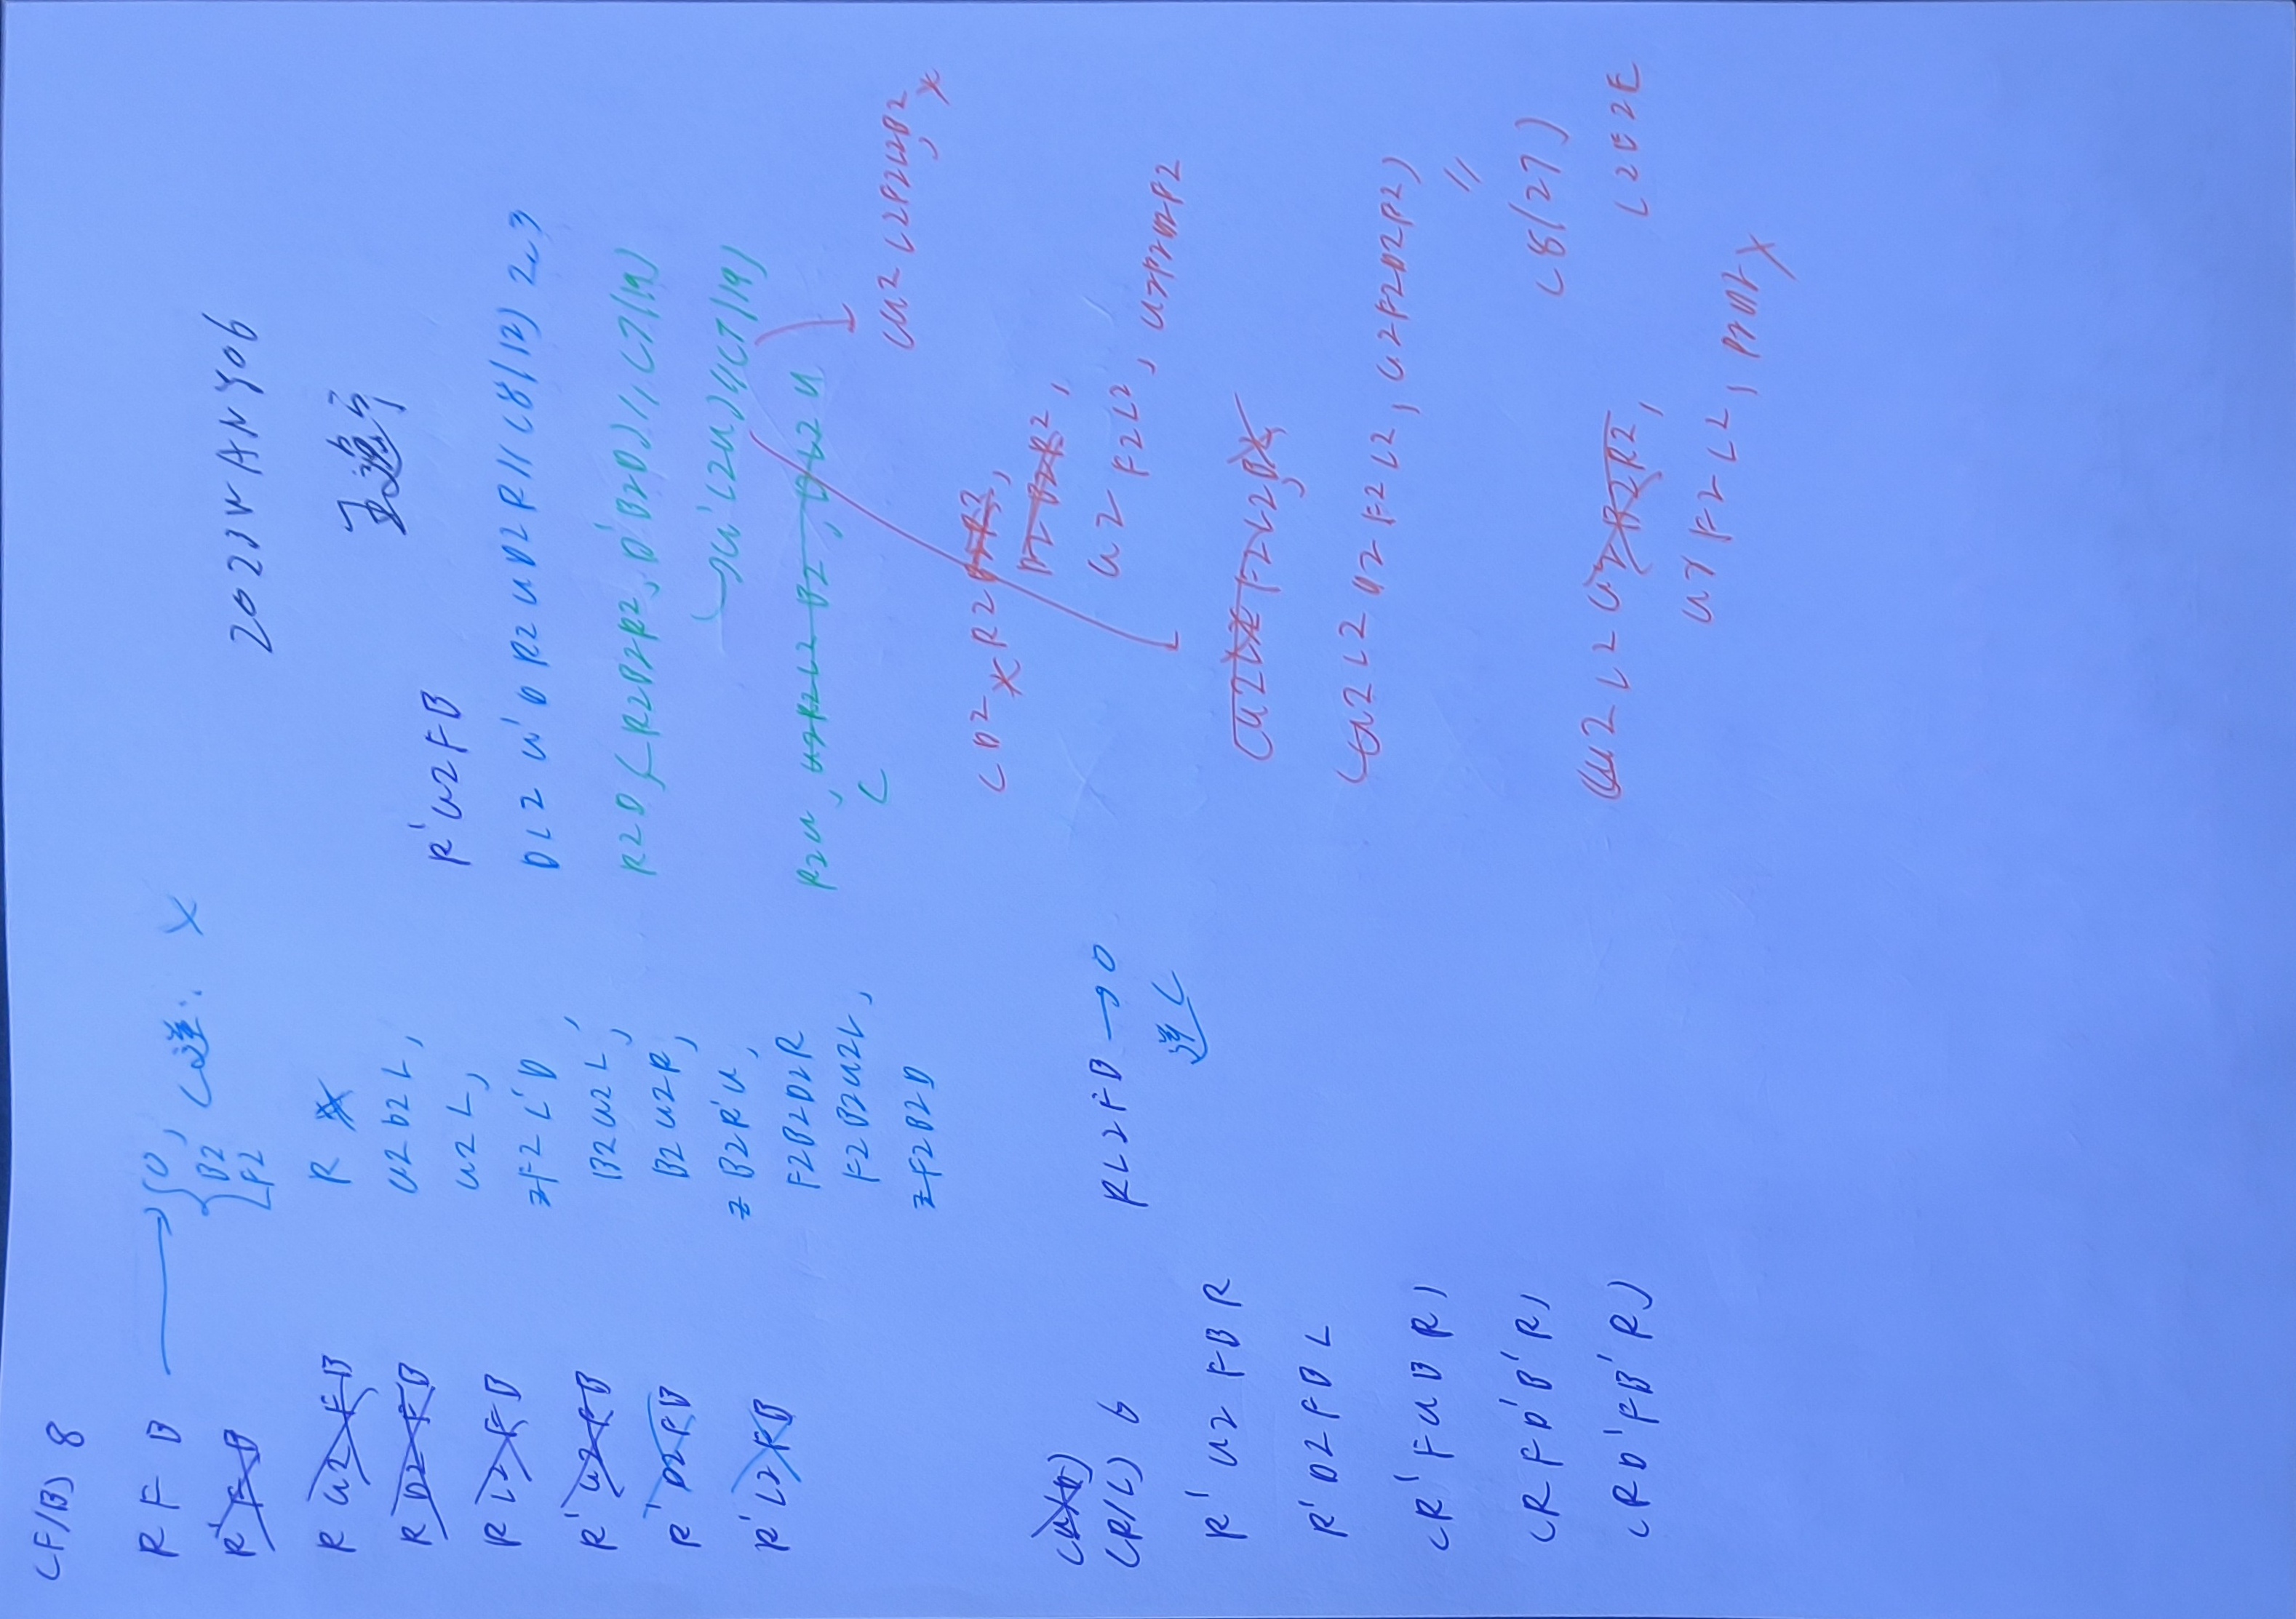 (F/B) 8
R F B
R' F B
R U2 F B
R D2 F B
R L2 F B
R' U2 F B
R' D2 F B
R' L2 F B
(R/L) 6
R' U2 F B R
R' D2 F B L
(R' F U B R)
(R F D' B' R)
(R D' F B' R)
0,
B2
F2
(逆: X
R X
U2 D2 L,
U2 L,
z F2 L' D
B2 U2 L,
B2 U2 R,
z B2 R' U,
F2 B2 D2 R
F2 B2 U2 L,
z F2 B2 D
R L2 F B → 0
逆 (
2023WANY06
王逸宁
R' U2 F B
D L2 U' D R2 U D2 R // (8/12) 2c3
R2 D, (R2 B2 R2, D' B2 D) // (7/19)
(U' L2 U) // (7/19)
R2 U, U2 R2 L2 B2, U2 U
(U2 L2 F2 L2 D2, X
(D2 X R2
D2 B2 R2,
U2 F2 L2, U2 F2 D2 F2
F2 L2 D2,
(U2 L2 U2 F2 L2, U2 F2 D2 F2)
//
(8/27)
(U2 L2 U2 B2 R2,
L2 D2 E
U2 F2 L2,